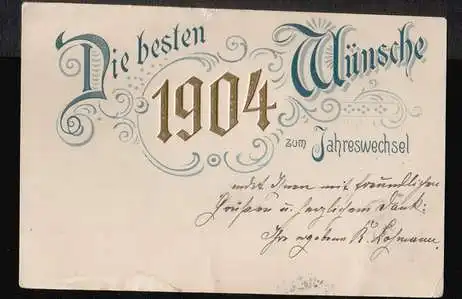 Die besten Wünsche
1904
zum Jahreswechsel
Ihnen mit freundlichen
Grüßen u. herzlichem Dank
Ihr